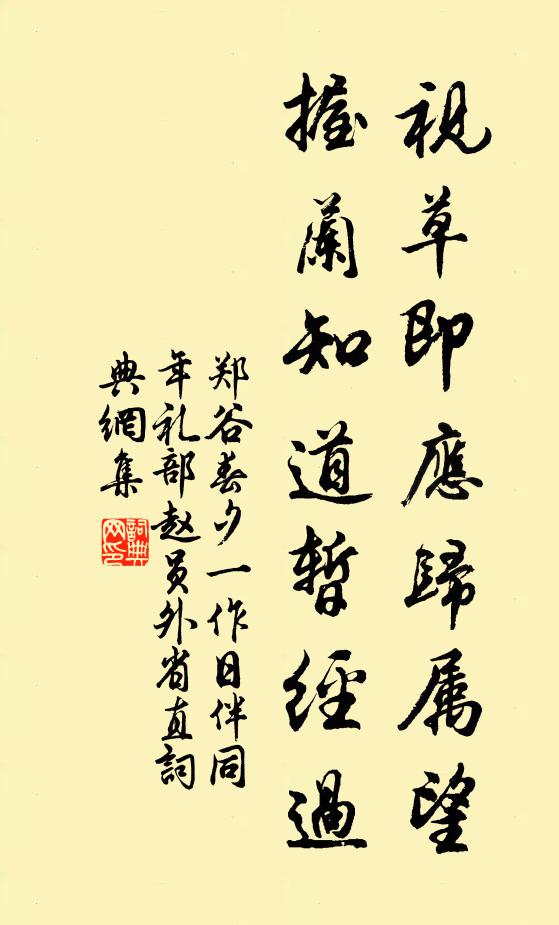 視草即應歸属望
握蘭知道暫經過
郑谷春夕一作日伴同
年礼部赵员外省直詞
典網集
詞典网印